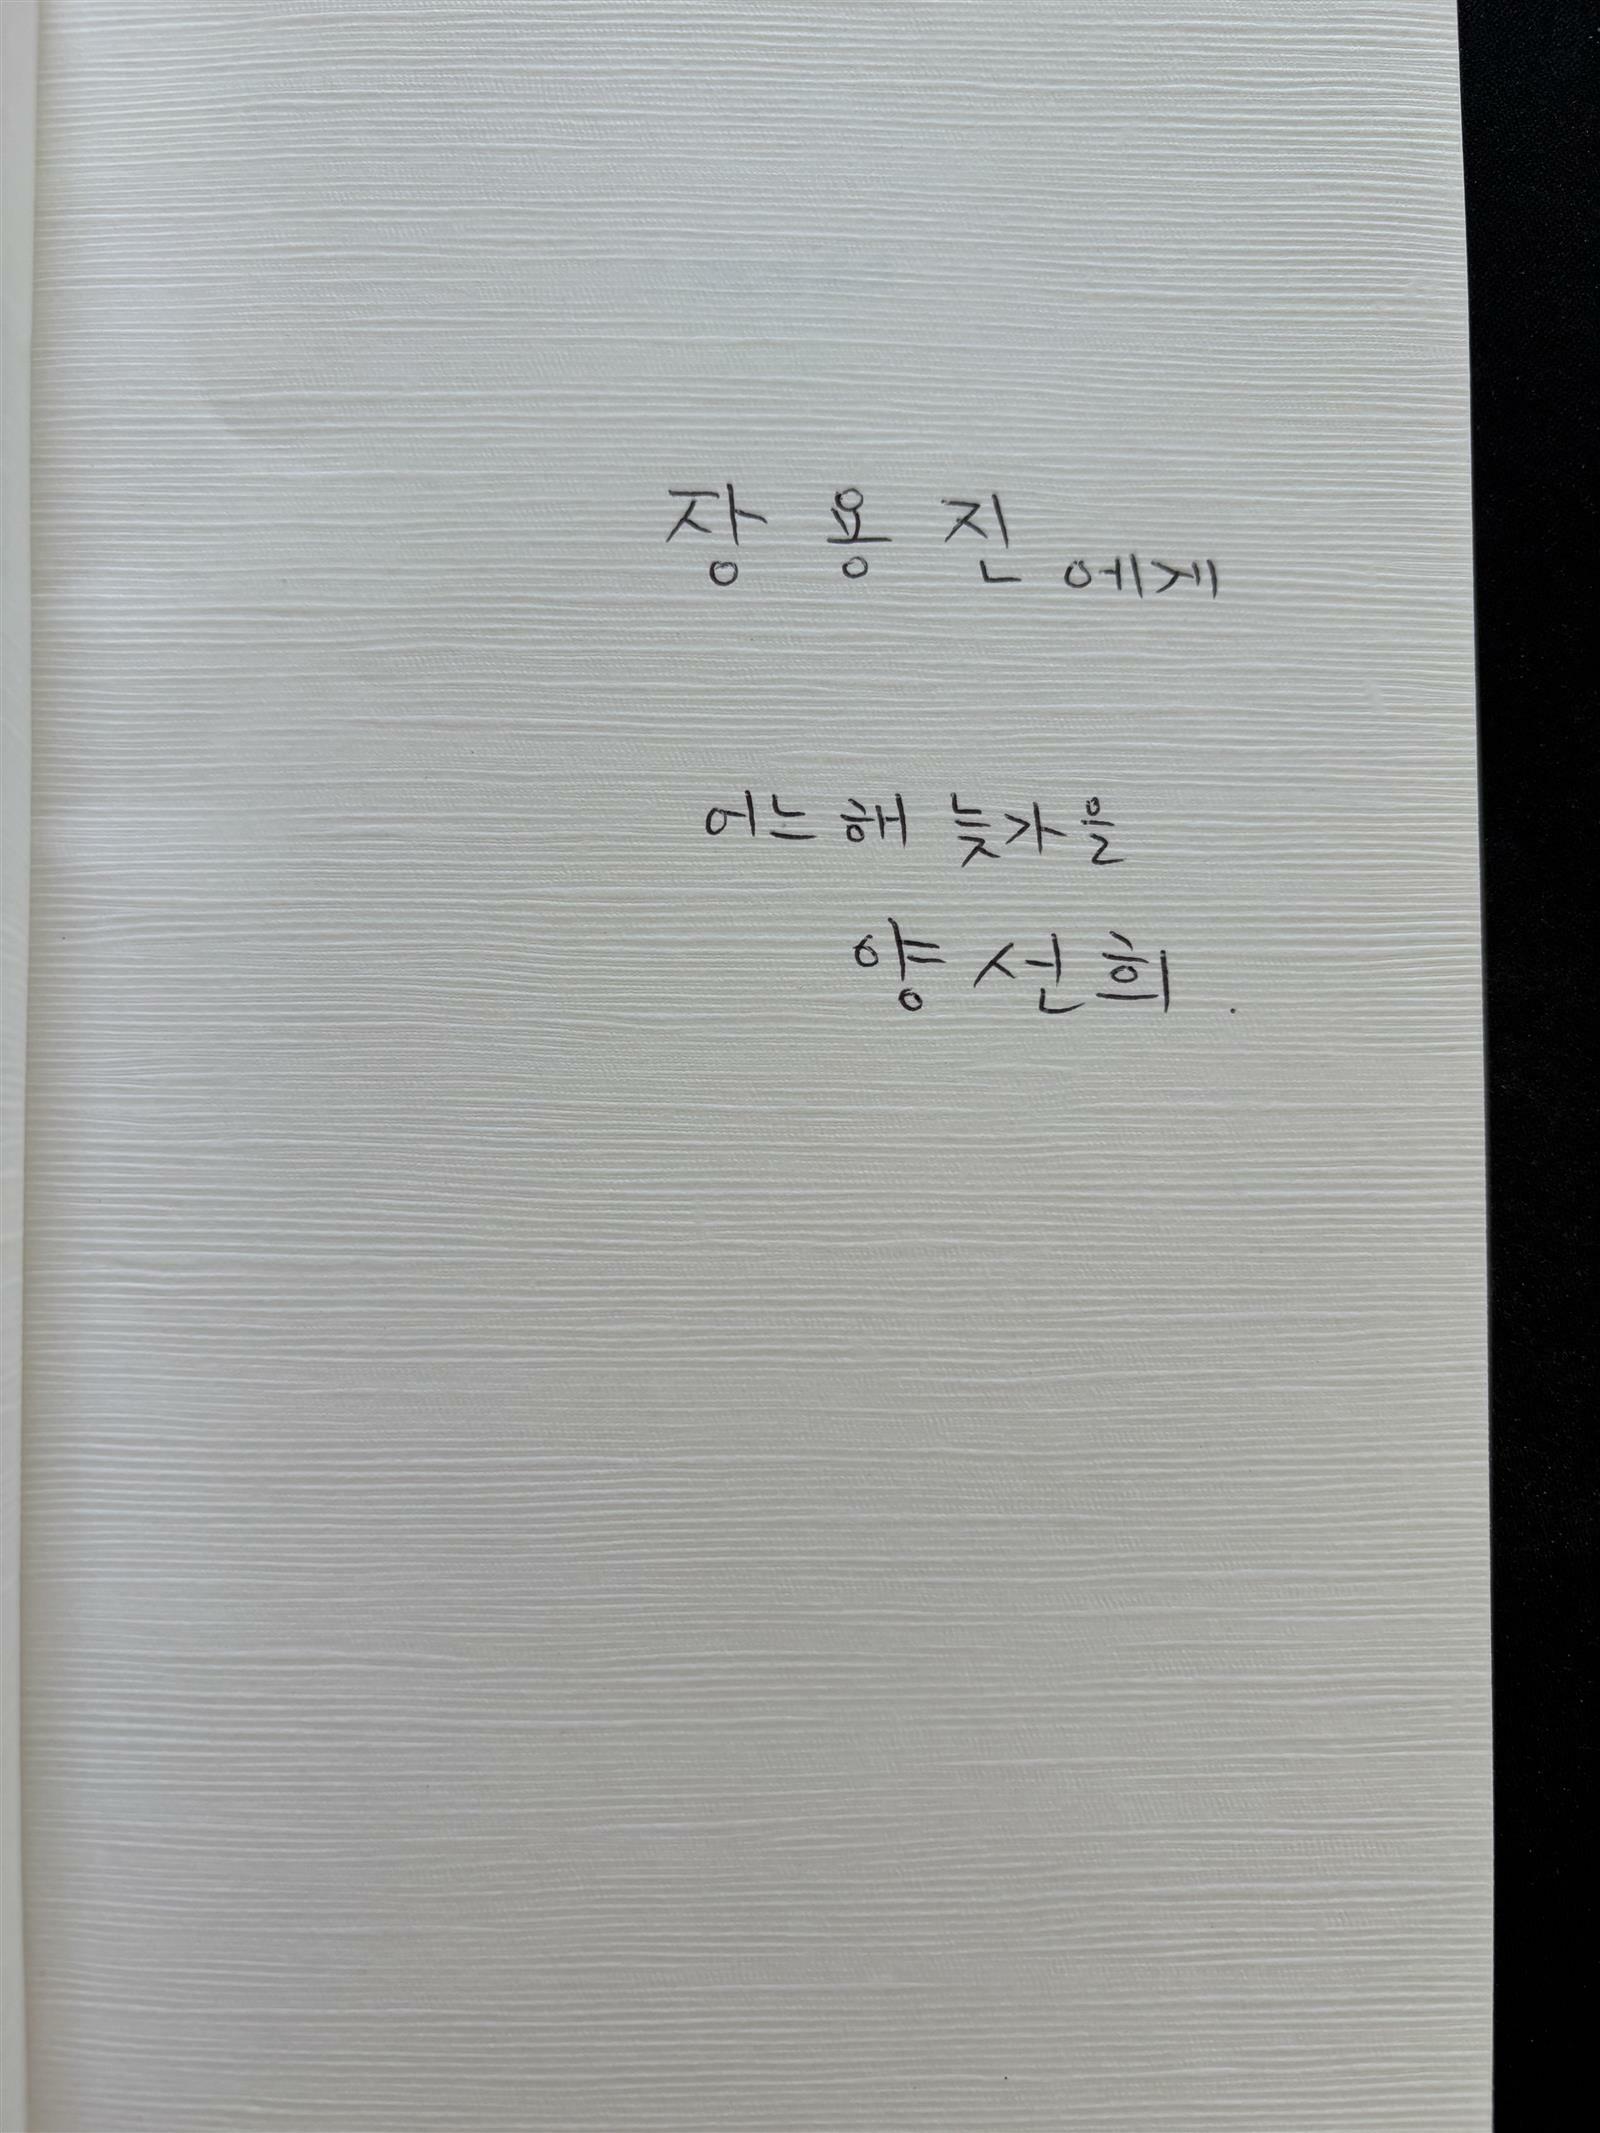 장 용 진 에게
어느 해 늦가을
양 선 희 .